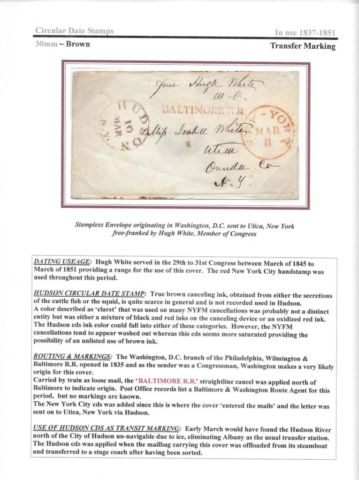 Circular Date Stamps In use 1837-1851
30mm ~ Brown Transfer Marking
free Hugh White
M.C.
BALTIMORE R.R.
HUDSON
MAR
10
N.Y.
NEW-YORK
MAR
8
Miss Isabell White
Utica
Oneida Co
N.Y.
Stampless Envelope originating in Washington, D.C. sent to Utica, New York
free-franked by Hugh White, Member of Congress
DATING USEAGE: Hugh White served in the 29th to 31st Congress between March of 1845 to
March of 1851 providing a range for the use of this cover. The red New York City handstamp was
used throughout this period.
HUDSON CIRCULAR DATE STAMP: True brown canceling ink, obtained from either the secretions
of the cuttle fish or the squid, is quite scarce in general and is not recorded used in Hudson.
A color described as 'claret' that was used on many NYFM cancellations was probably not a distinct
entity but was either a mixture of black and red inks on the canceling device or an oxidized red ink.
The Hudson cds ink color could fall into either of these categories. However, the NYFM
cancellations tend to appear washed out whereas this cds seems more saturated providing the
possibility of an unlisted use of brown ink.
ROUTING & MARKINGS: The Washington, D.C. branch of the Philadelphia, Wilmington &
Baltimore R.R. opened in 1835 and as the sender was a Congressman, Washington makes a very likely
origin for this cover.
Carried by train as loose mail, the 'BALTIMORE R.R.' straightline cancel was applied north of
Baltimore to indicate origin. Post Office records list a Baltimore & Washington Route Agent for this
period, but no markings are known.
The New York City cds was added since this is where the cover 'entered the mails' and the letter
was sent on to Utica, New York via Hudson.
USE OF HUDSON CDS AS TRANSIT MARKING: Early March would have found the Hudson River
north of the City of Hudson un-navigable due to ice, eliminating Albany as the usual transfer station.
The Hudson cds was applied when the mailbag carrying this cover was offloaded from its steamboat
and transferred to a stage coach after having been sorted.